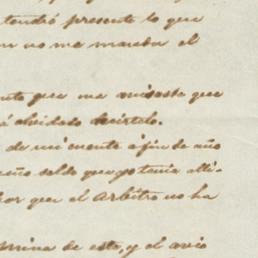 tendré presente lo que
no me marcha el
que me avisaste que
á olvidado decirtelo.
de mi cuenta a fin de año
saldo que yo tenia alli-
que el arbitro no ha
mina de este, y el avio